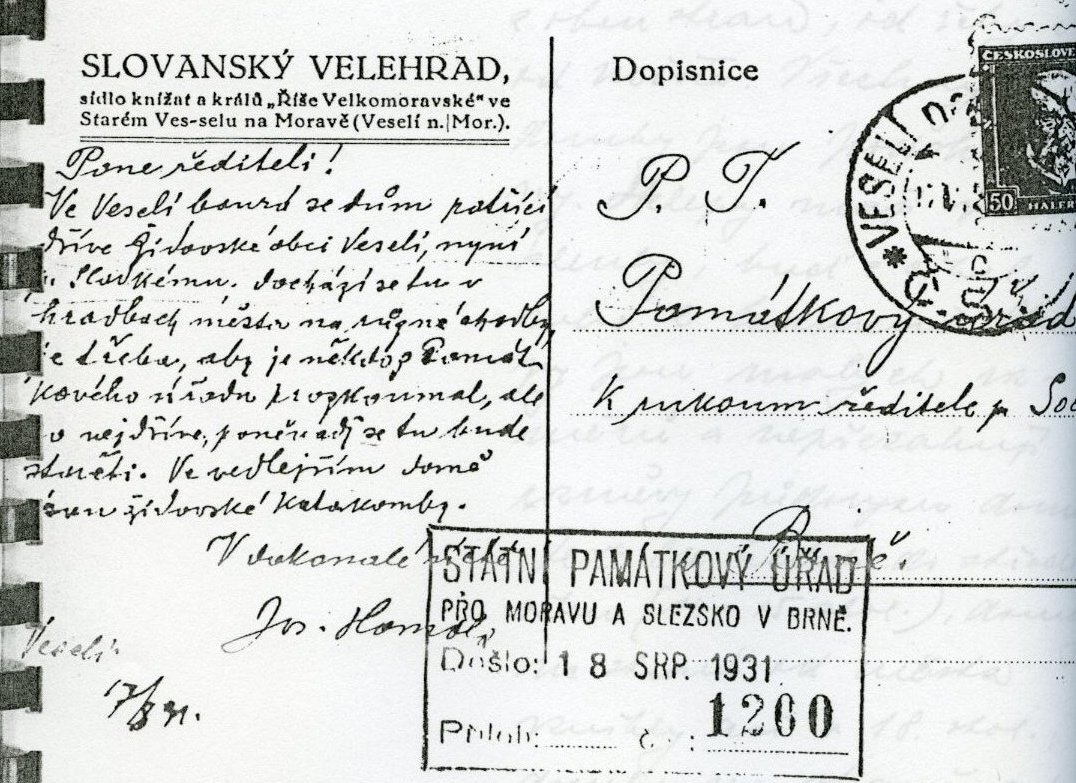 SLOVANSKÝ VELEHRAD,
sídlo knížat a králů „Říše Velkomoravské“ ve
Starém Ves-selu na Moravě (Veselí n.|Mor.).
Pane řediteli!
Ve Veselí bourá se dům patřící
dříve Židovské obci Veselí, nyní
Sladkému. dochází se tu v
hradbách města na různé chodby,
je třeba, aby je někdo z Památ
kového úřadu prozkoumal, ale
co nejdříve, poněvadž se tu bude
stavěti. Ve vedlejším domě
jsou židovské Katakomby.
V dokonalé úctě
Jos.
Veselí
17/8 31.
Dopisnice
P. T.
Památkový úřad
K rukoum ředitele p.
Brně.
ČESKOSLOVE
50 HALER
VESELÍ
STÁTNÍ PAMÁTKOVÝ ÚŘAD
PRO MORAVU A SLEZSKO V BRNĚ.
Došlo: 18 SRP. 1931
Příloh: č.: 1260